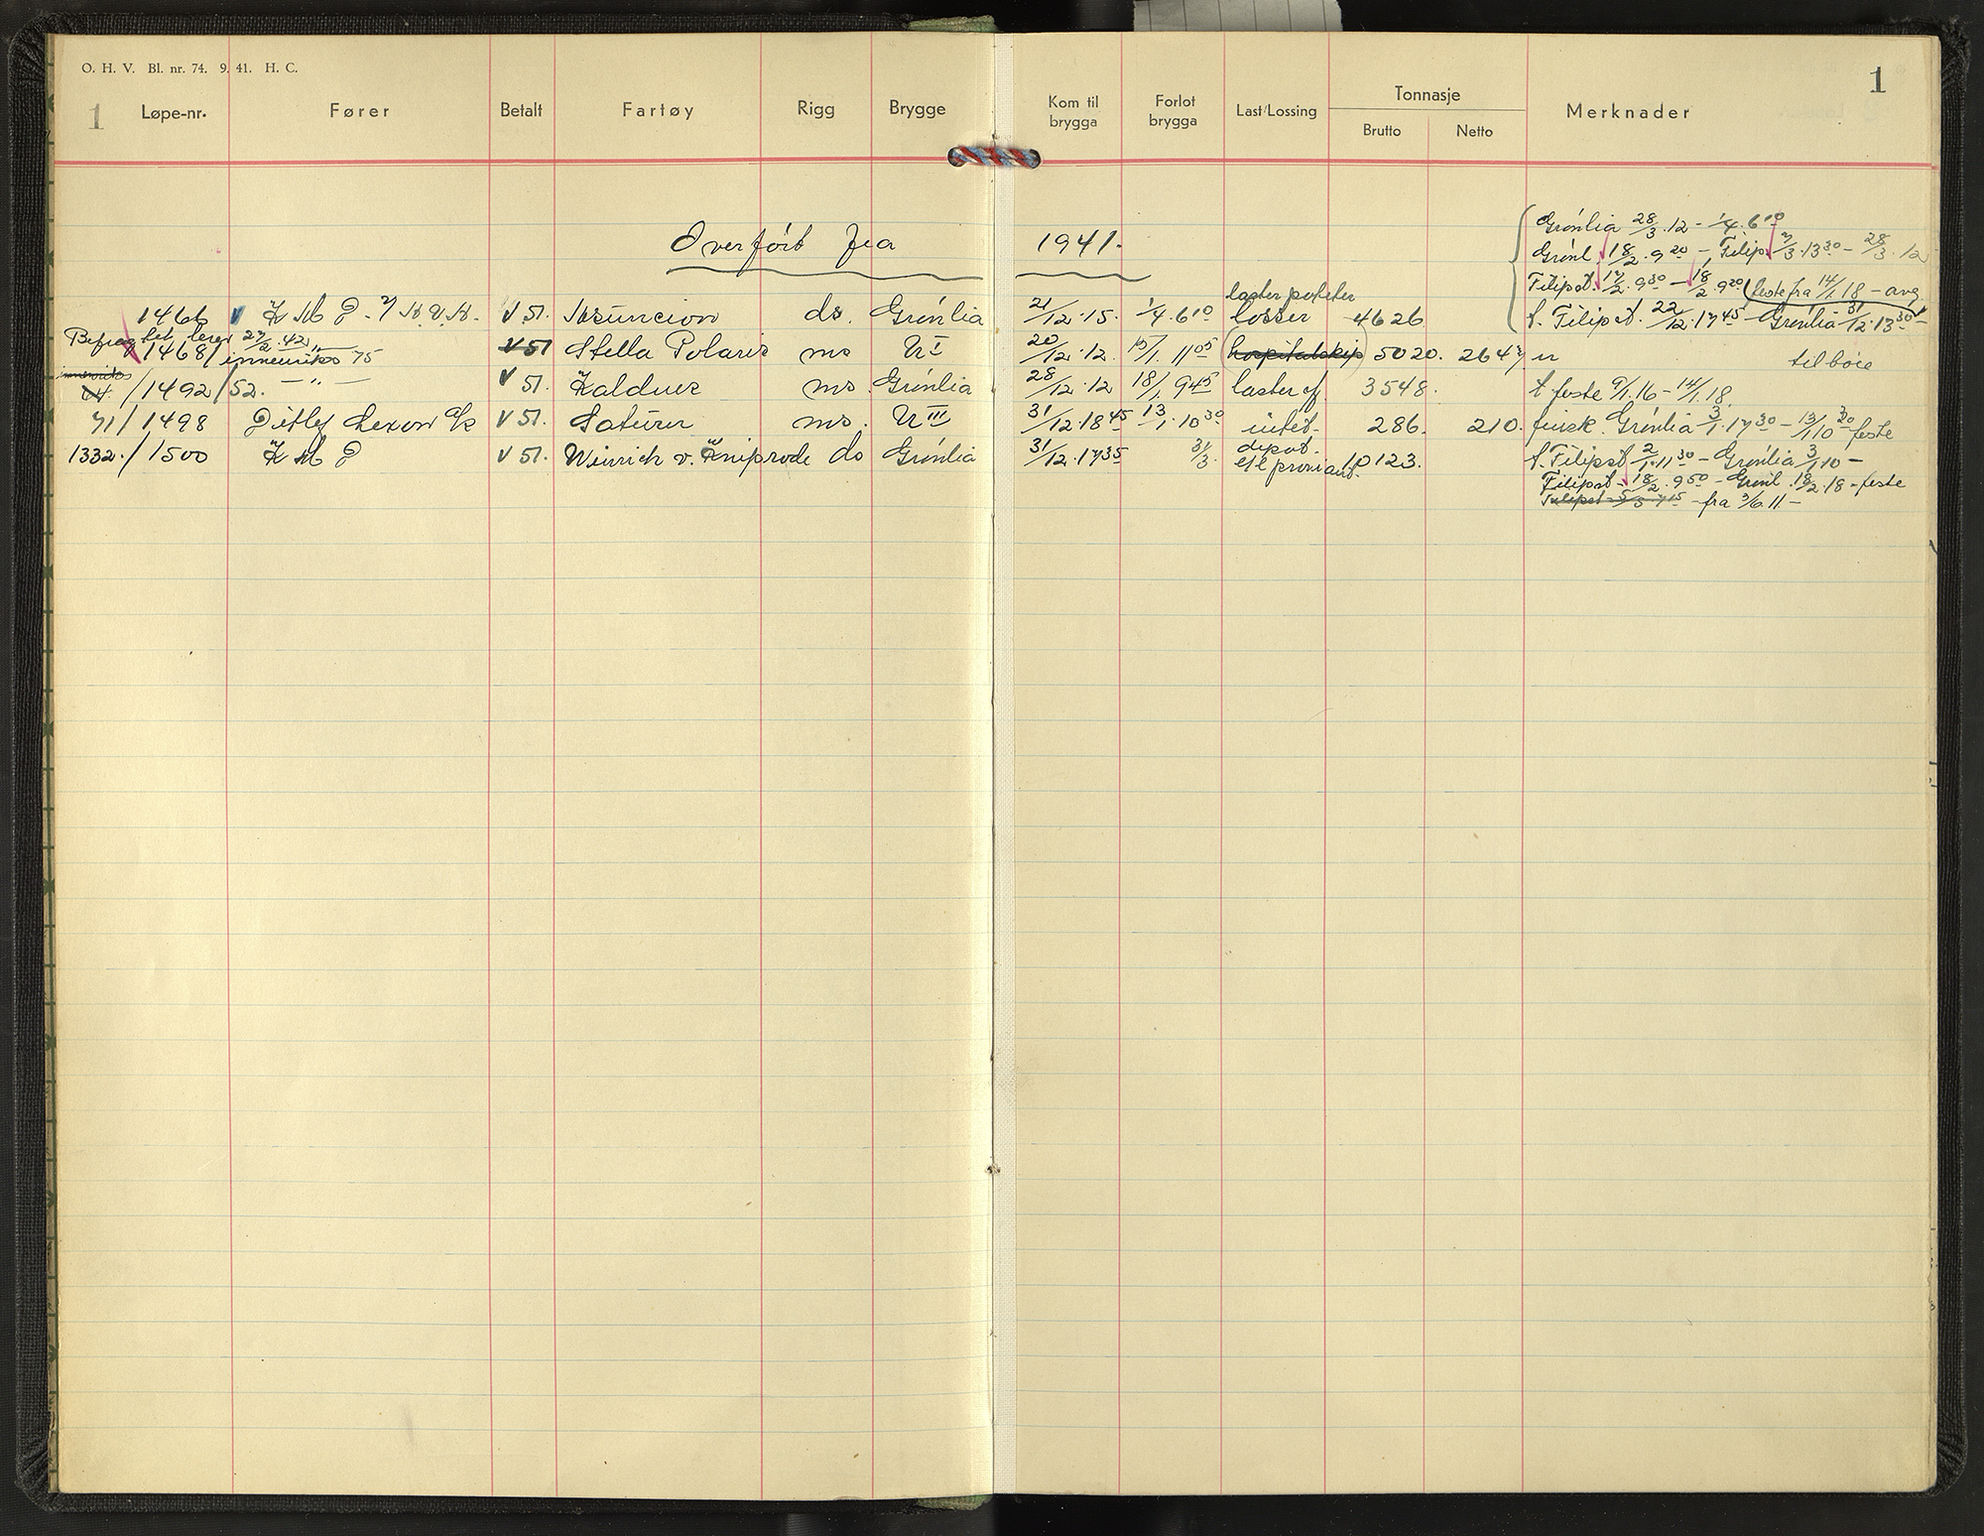 O. H. V. Bl. nr. 74. 9. 41. H. C.
1 Løpe-nr. Fører Betalt Fartøy Rigg Brygge Kom til brygga Forlot brygga Last/Lossing Tonnasje Brutto Netto Merknader 1
Overført fra 1941.
Grønlia 28/3.12 - 1/4.6¹⁰
Grønl. 18/2.9²⁰ - Filip. 3/3.13³⁰ - 28/3.12
Filipst. 17/2.9³⁰ - 18/2.9²⁰ (feste fra 14/1.18 - avg.
laster poteter
1466 V K M D. V 51. Asuncion ds. Grønlia 21/12.15. 1/4.6¹⁰ losser 4626 t. Filipst. 22/12.17⁴⁵ - Grønlia 31/12.13³⁰ -
27/2.42
1468/ innenriks 75 V 51 Stella Polaris ms U I 20/12.12. 15/1. 11⁰⁵ hospitalskip 5020. 2647 n til bøie
innenriks
/1492/52. - " - V 51. Kaldnes ms. Grønlia 28/12.12 18/1. 9⁴⁵ laster 3548. t feste 9/1.16 - 14/1.18.
71/1498 Ditlef Lexow V 51. Saturn ms. U III 31/12.18⁴⁵ 13/1.10³⁰ intet. 286. 210. finsk. Grønlia 3/1.17³⁰ - 13/1 10³⁰ feste
1332./1500 K M D V 51. Winrich v. Kniprode ds Grønlia 31/12.17³⁵ 31/3. depot. proviant. 10123. t. Filipst. 2/1.11³⁰ - Grønlia 3/1.10 -
Filipst. 18/2.9⁵⁰ - Grønl. 18/2.18 - feste
Filipst - fra 3/6.11. -